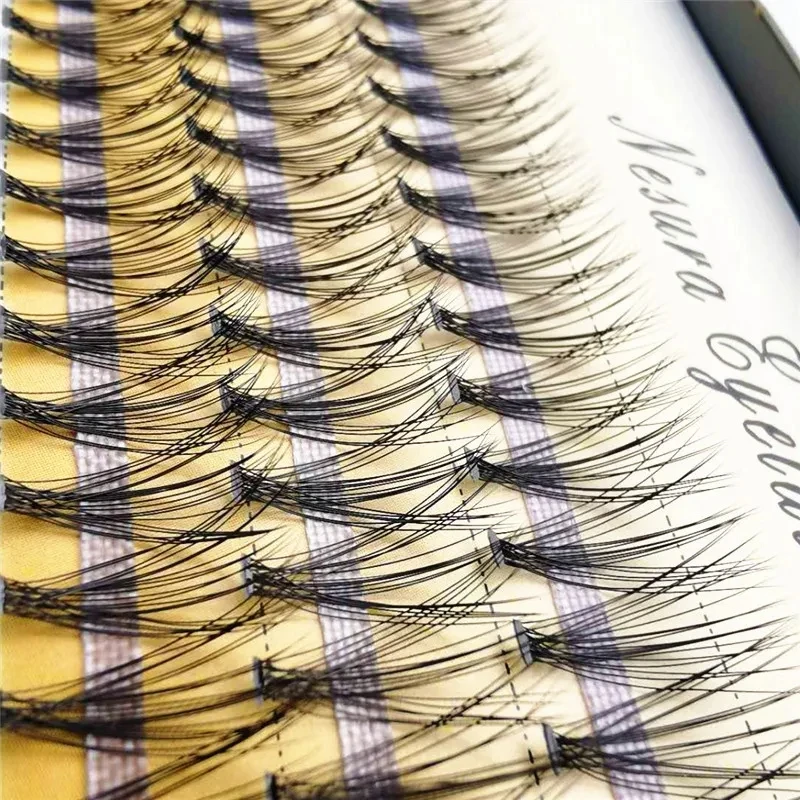 Nesura Eyelas